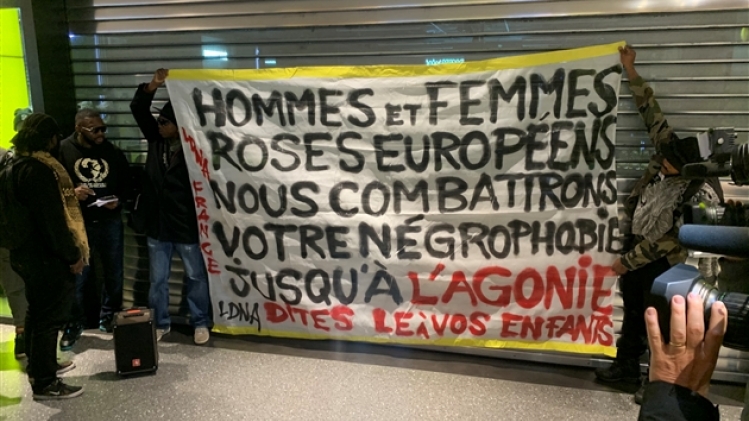 HOMMES ET FEMMES
ROSES EUROPÉENS
NOUS COMBATTRONS
VOTRE NÉGROPHOBIE
JUSQU'À L'AGONIE
LDNA DITES LE À VOS ENFANTS
LDNA FRANCE